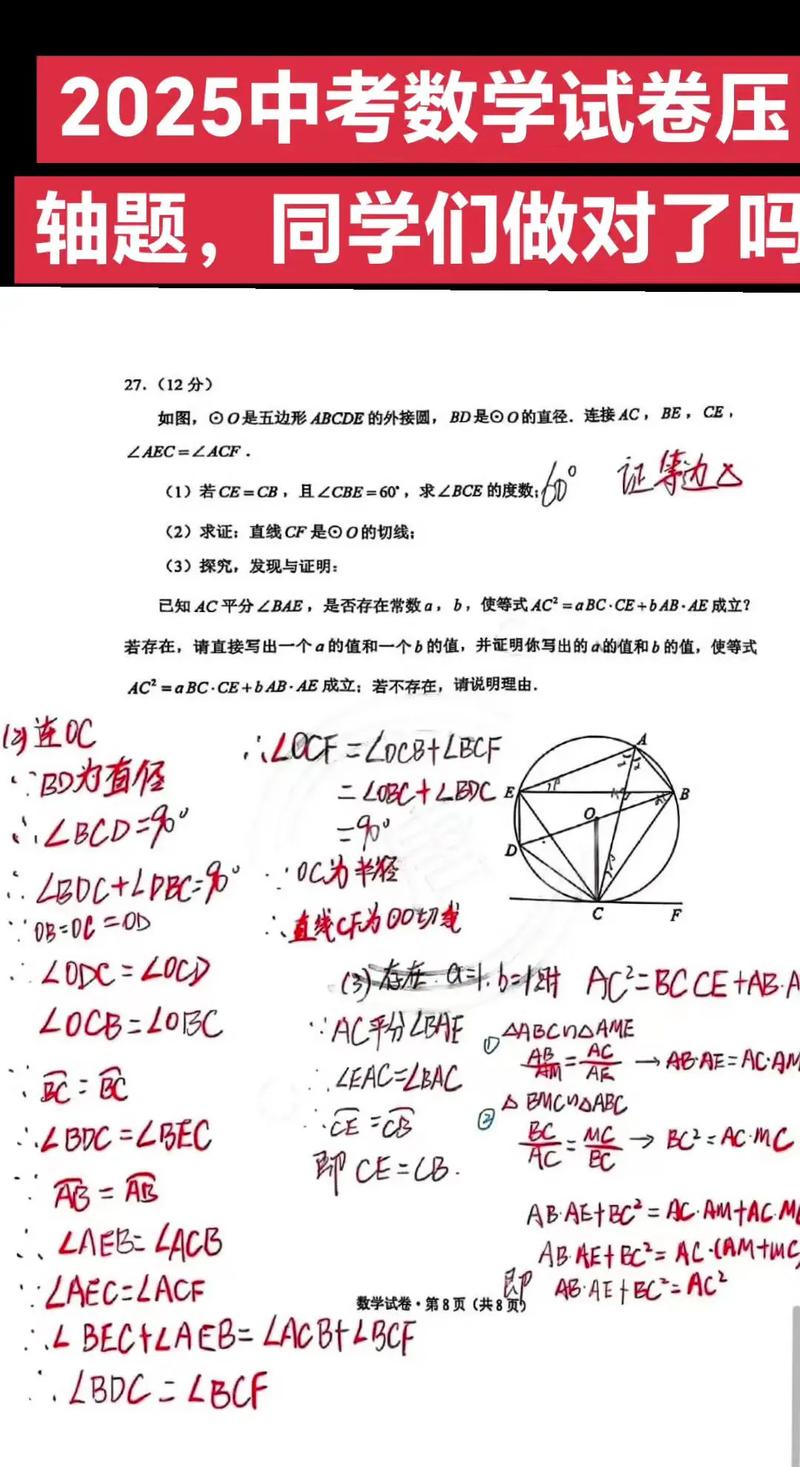 2025中考数学试卷压
轴题，同学们做对了吗
27.（12分）
如图，⊙O是五边形ABCDE的外接圆，BD是⊙O的直径．连接AC，BE，CE，
∠AEC=∠ACF．
（1）若CE=CB，且∠CBE=60°，求∠BCE的度数； 60° 证等边△
（2）求证：直线CF是⊙O的切线；
（3）探究，发现与证明：
已知AC平分∠BAE，是否存在常数a，b，使等式AC²=aBC·CE+bAB·AE成立？
若存在，请直接写出一个a的值和一个b的值，并证明你写出的a的值和b的值，使等式
AC²=aBC·CE+bAB·AE成立；若不存在，请说明理由．
(2)连OC
∵BD为直径
∴∠BCD=90°
∴∠BDC+∠DBC=90°
∵OB=OC=OD
∴∠ODC=∠OCD
∠OCB=∠OBC
∵BC=BC
∴∠BDC=∠BEC
∵AB=AB
∴∠AEB=∠ACB
∵∠AEC=∠ACF
∴∠BEC+∠AEB=∠ACB+∠BCF
∴∠BDC=∠BCF
∴∠OCF=∠OCB+∠BCF
=∠OBC+∠BDC
=90°
∵OC为半径
∴直线CF为⊙O切线
A
E
B
O
D
C
F
(3)存在 a=1.b=1时 AC²=BC CE+AB·A
∵AC平分∠BAE
∴∠EAC=∠BAC
∴CE=CB
即CE=CB.
① △ABC∽△AME
AB/AM=AC/AE→AB·AE=AC·AM
② △BMC∽△ABC
BC/AC=MC/BC→BC²=AC·MC
AB·AE+BC²=AC·AM+AC·MC
AB·AE+BC²=AC·(AM+MC
即 AB·AE+BC²=AC²
数学试卷·第8页（共8页）